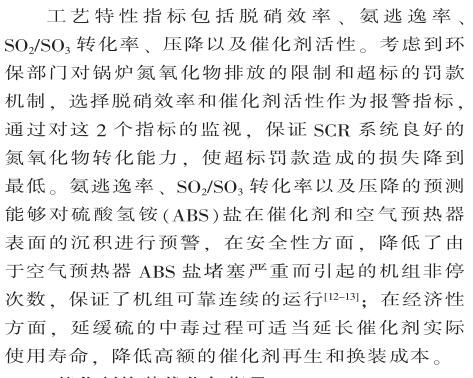 工艺特性指标包括脱硝效率、氨逃逸率、
SO₂/SO₃ 转化率、压降以及催化剂活性。考虑到环
保部门对锅炉氮氧化物排放的限制和超标的罚款
机制，选择脱硝效率和催化剂活性作为报警指标，
通过对这 2 个指标的监视，保证 SCR 系统良好的
氮氧化物转化能力，使超标罚款造成的损失降到
最低。氨逃逸率、SO₂/SO₃ 转化率以及压降的预测
能够对硫酸氢铵(ABS)盐在催化剂和空气预热器
表面的沉积进行预警，在安全性方面，降低了由
于空气预热器 ABS 盐堵塞严重而引起的机组非停
次数，保证了机组可靠连续的运行[12-13]；在经济性
方面，延缓硫的中毒过程可适当延长催化剂实际
使用寿命，降低高额的催化剂再生和换装成本。